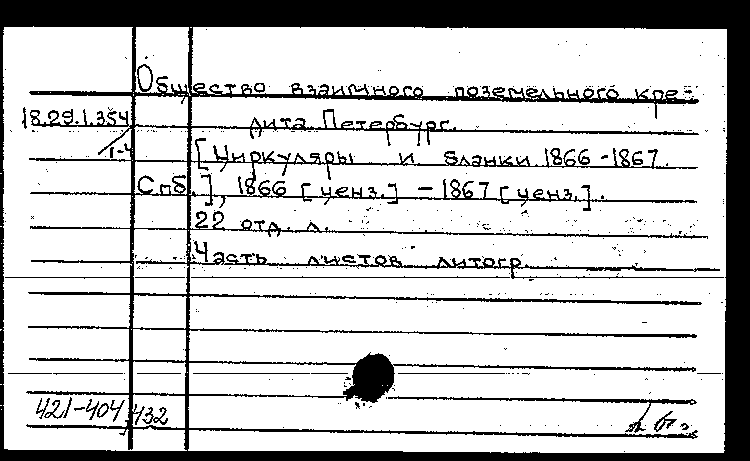 Общество взаимного поземельного кре-
18.29.1.354 дита. Петербург.
1-4 [Циркуляры и бланки 1866-1867.
Спб.], 1866 [ценз.] - 1867 [ценз.].
22 отд. л.
Часть листов литогр.
421-404, 432